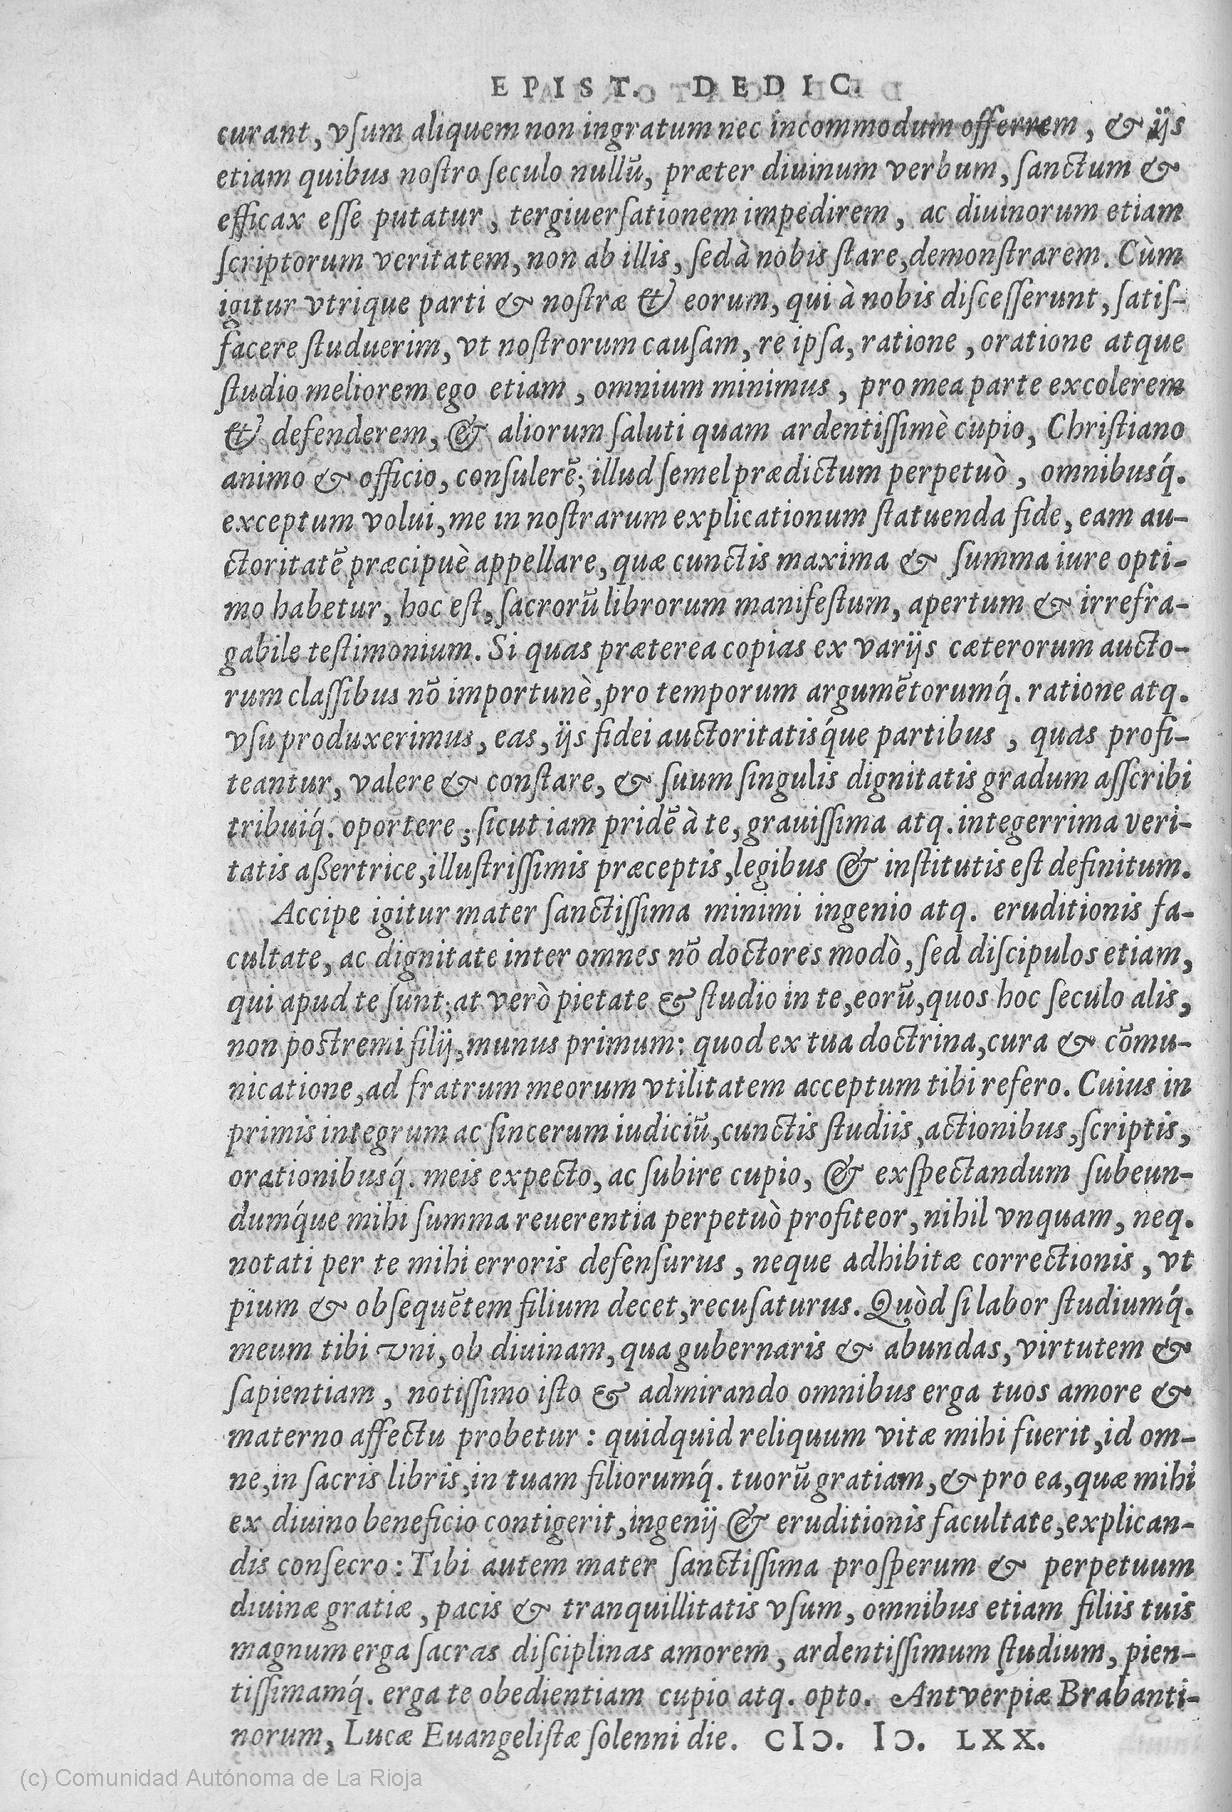 EPIST. DEDIC.
curant, vsum aliquem non ingratum nec incommodum offerrem, & ijs
etiam quibus nostro seculo nullū, præter diuinum verbum, sanctum &
efficax esse putatur, tergiuersationem impedirem, ac diuinorum etiam
scriptorum veritatem, non ab illis, sed à nobis stare, demonstrarem. Cùm
igitur vtrique parti & nostræ & eorum, qui à nobis discesserunt, satis-
facere studuerim, vt nostrorum causam, re ipsa, ratione, oratione atque
studio meliorem ego etiam, omnium minimus, pro mea parte excolerem
& defenderem, & aliorum saluti quam ardentissimè cupio, Christiano
animo & officio, consulerē; illud semel prædictum perpetuò, omnibusq́.
exceptum volui, me in nostrarum explicationum statuenda fide, eam au-
ctoritatē præcipuè appellare, quæ cunctis maxima & summa iure opti-
mo habetur, hoc est, sacrorū librorum manifestum, apertum & irrefra-
gabile testimonium. Si quas præterea copias ex varijs cæterorum aucto-
rum classibus nō importunè, pro temporum argumētorumq́. ratione atq.
vsu produxerimus, eas, ijs fidei auctoritatisq́ue partibus, quas profi-
teantur, valere & constare, & suum singulis dignitatis gradum asscribi
tribuiq́. oportere; sicut iam pridē à te, grauissima atq. integerrima veri-
tatis aßertrice, illustrissimis præceptis, legibus & institutis est definitum.
Accipe igitur mater sanctissima minimi ingenio atq. eruditionis fa-
cultate, ac dignitate inter omnes nō doctores modò, sed discipulos etiam,
qui apud te sunt; at verò pietate & studio in te, eorū, quos hoc seculo alis,
non postremi filij, munus primum: quod ex tua doctrina, cura & cōmu-
nicatione, ad fratrum meorum vtilitatem acceptum tibi refero. Cuius in
primis integrum ac sincerum iudiciū, cunctis studiis, actionibus, scriptis,
orationibusq́. meis expecto, ac subire cupio, & exspectandum subeun-
dumq́ue mihi summa reuerentia perpetuò profiteor, nihil vnquam, neq.
notati per te mihi erroris defensurus, neque adhibitæ correctionis, vt
pium & obsequētem filium decet, recusaturus. Quòd si labor studiumq́.
meum tibi vni, ob diuinam, qua gubernaris & abundas, virtutem &
sapientiam, notissimo isto & admirando omnibus erga tuos amore &
materno affectu probetur: quidquid reliquum vitæ mihi fuerit, id om-
ne, in sacris libris, in tuam filiorumq́. tuorū gratiam, & pro ea, quæ mihi
ex diuino beneficio contigerit, ingenij & eruditionis facultate, explican-
dis consecro: Tibi autem mater sanctissima prosperum & perpetuum
diuinæ gratiæ, pacis & tranquillitatis vsum, omnibus etiam filiis tuis
magnum erga sacras disciplinas amorem, ardentissimum studium, pien-
tissimamq́. erga te obedientiam cupio atq. opto. Antverpiæ Brabanti-
norum, Lucæ Euangelistæ solenni die. CIↃ. IↃ. LXX.
(c) Comunidad Autónoma de La Rioja